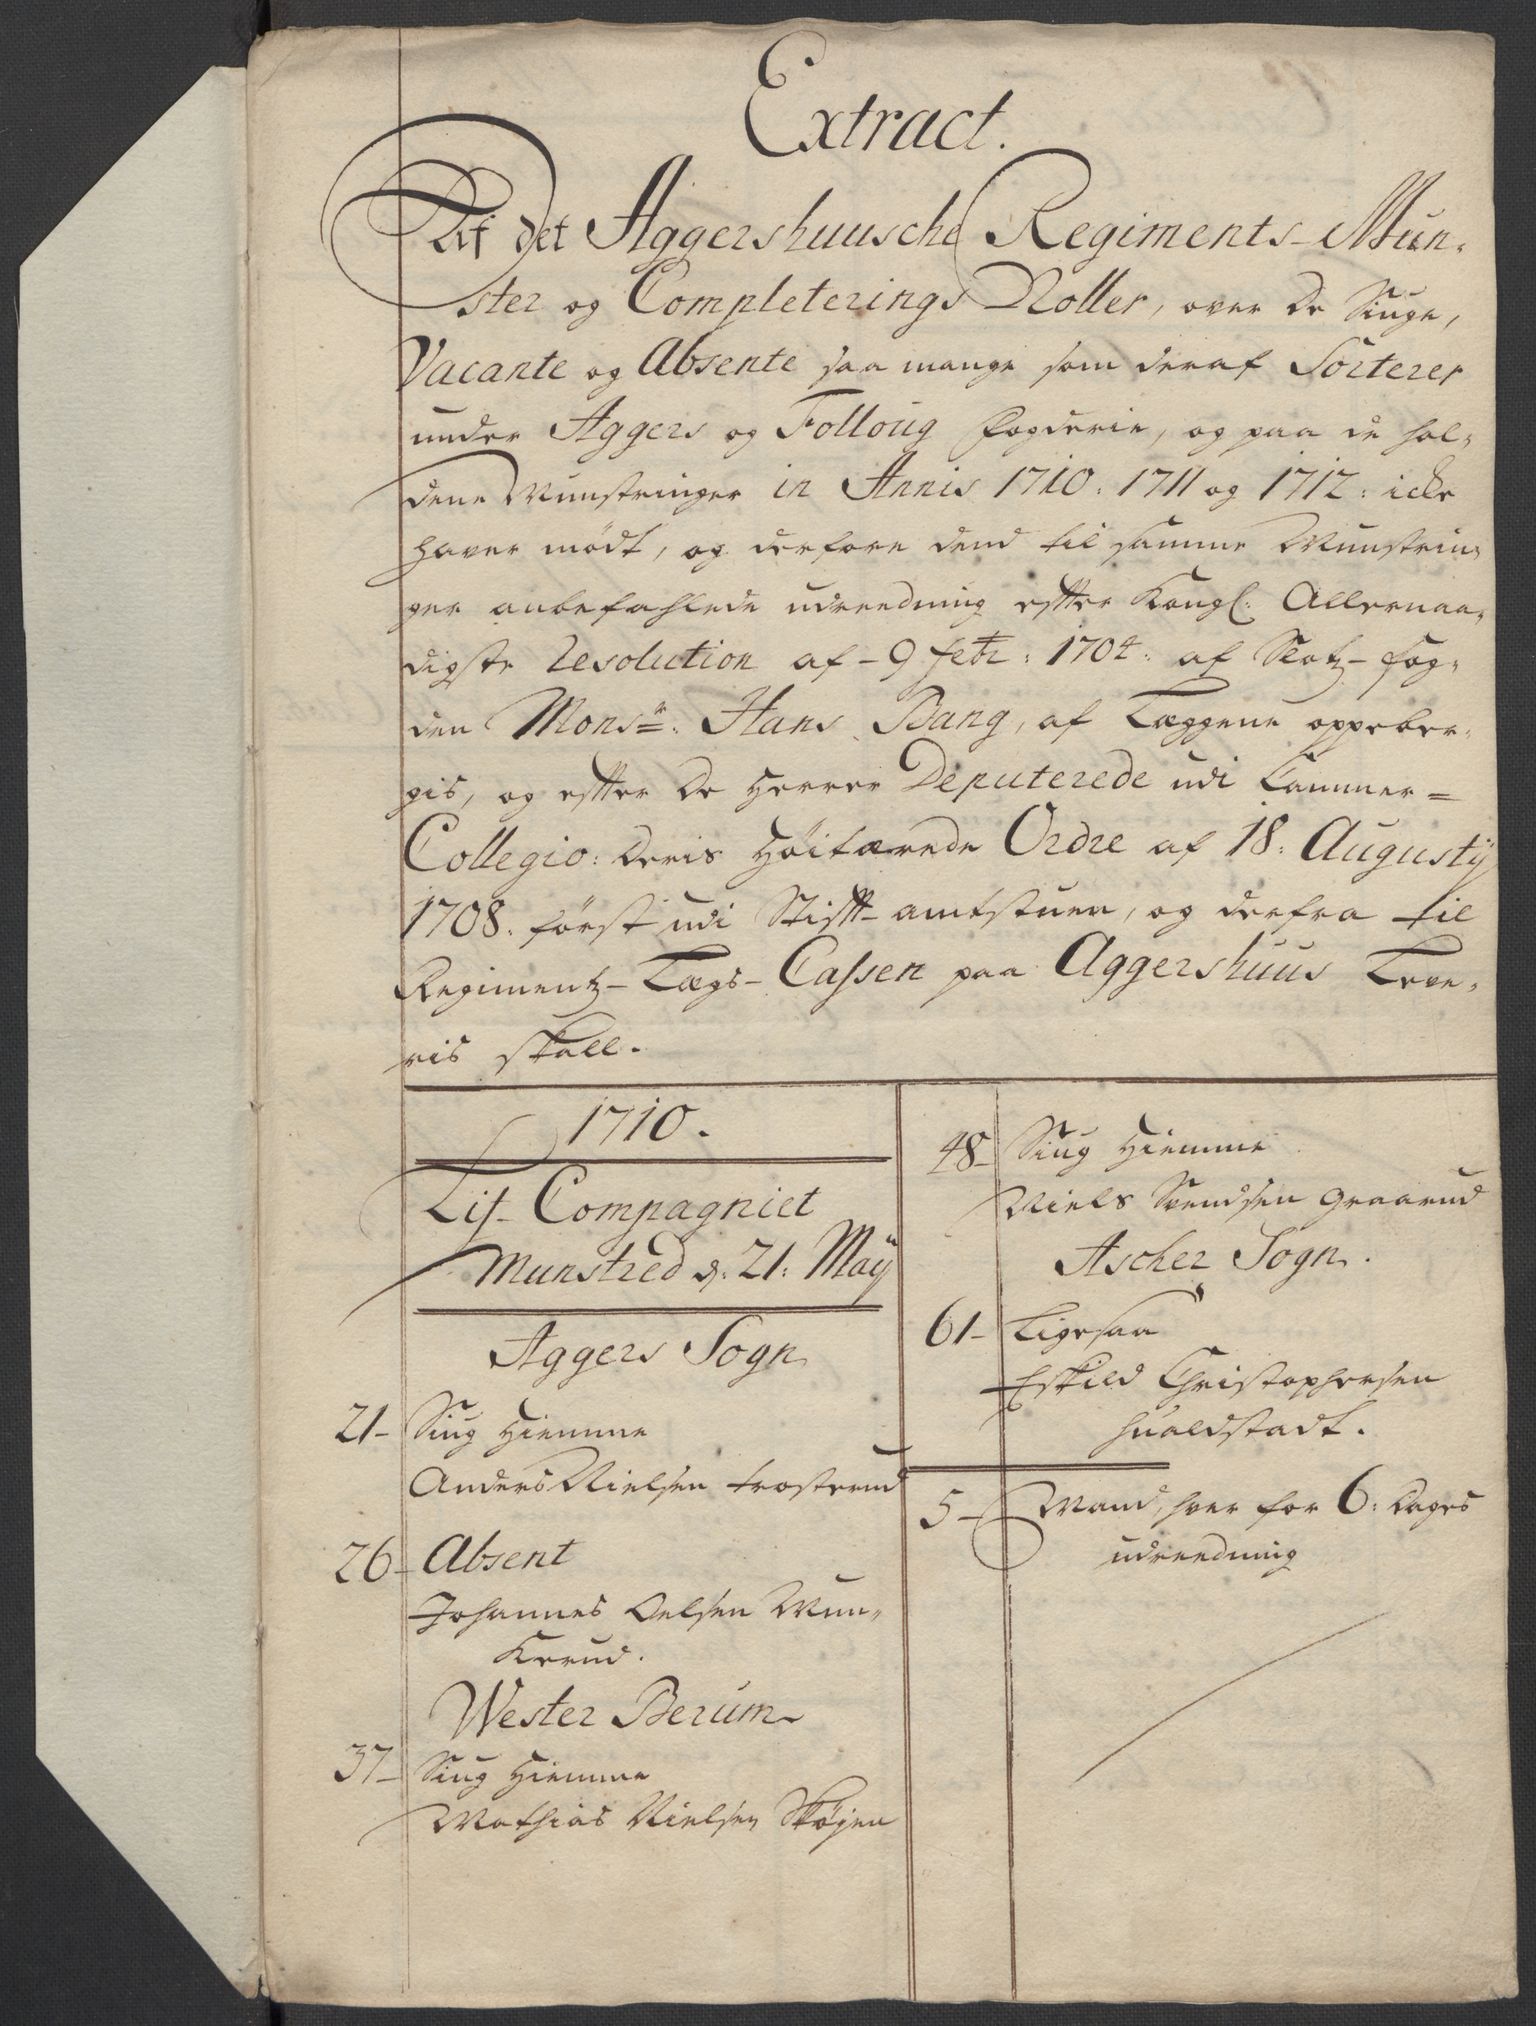 Extract.
Af det Aggershuusche Regiments-Mun-
ster og Completerings Roller, over de Siuge,
Vacante og Absente saa mange som deraf Sorterer
under Aggers og Folloug fogderie, og paa de hol-
dene Munstringer in Annis 1710: 1711 og 1712: icke
haver mødt, og derfore dend til samme Munstrin-
ger anbefahlede udreedning efter Kongl: Allernaa-
digste Resolution af 9 febr: 1704: af Slotz-fog-
den Monsr: Hans Bang, af Læggene oppeber-
gis, og efter De Herrer Deputerede udi Cammer=
Collegio: Deris Høitærede Ordre af 18: Augustij
1708. først udi Stift-amtstuen, og derfra til
Regimentz-Lægs-Cassen paa Aggershuus Leve-
ris skall.
1710.
Lif-Compagniet
Munstred d: 21: Maij
Aggers Sogn
21- Siug Hiemme
Anders Nielsen trosterud
26- Absent
Johannes Oelsen Mun-
kerud.
Wester Berum
37- Siug Hiemme
Mathias Nielsen Skøyen
48- Siug Hiemme
Niels Svendsen Graarud
Ascher Sogn.
61- Ligesaa
Eskild Christophersen
hualdstadt.
5- Mand, hver for 6: Dages
udreedning